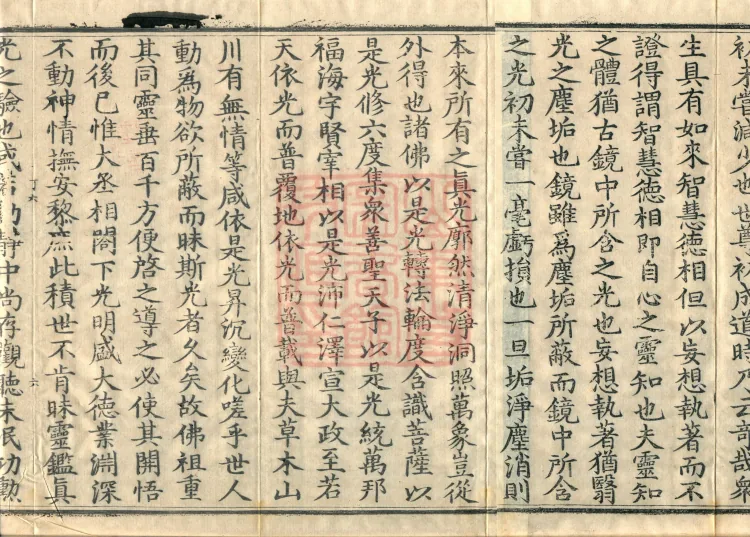 初未嘗減少也世尊初成道時乃云奇哉衆
生具有如來智慧德相但以妄想執著而不
證得謂智慧德相即自心之靈知也夫靈知
之體猶古鏡中所含之光也妄想執著猶翳
光之塵垢也鏡雖爲塵垢所蔽而鏡中所含
之光初未嘗一毫虧損也一旦垢淨塵消則
本來所有之眞光廓然清淨洞照萬象豈從
外得也諸佛以是光轉法輪度含識菩薩以
是光修六度集衆善聖天子以是光統萬邦
福海宇賢宰相以是光沛仁澤宣大政至若
天依光而普覆地依光而普載與夫草木山
川有無情等咸依是光昇沉變化嗟乎世人
動爲物欲所蔽而昧斯光者久矣故佛祖重
其同靈垂百千方便啓之導之必使其開悟
而後已惟大丞相閤下光明盛大德業淵深
不動神情撫安黎庶此積世不肯昧靈鑑眞
丁六 六
光之驗也或靜中尚存觀聽未泯功勳